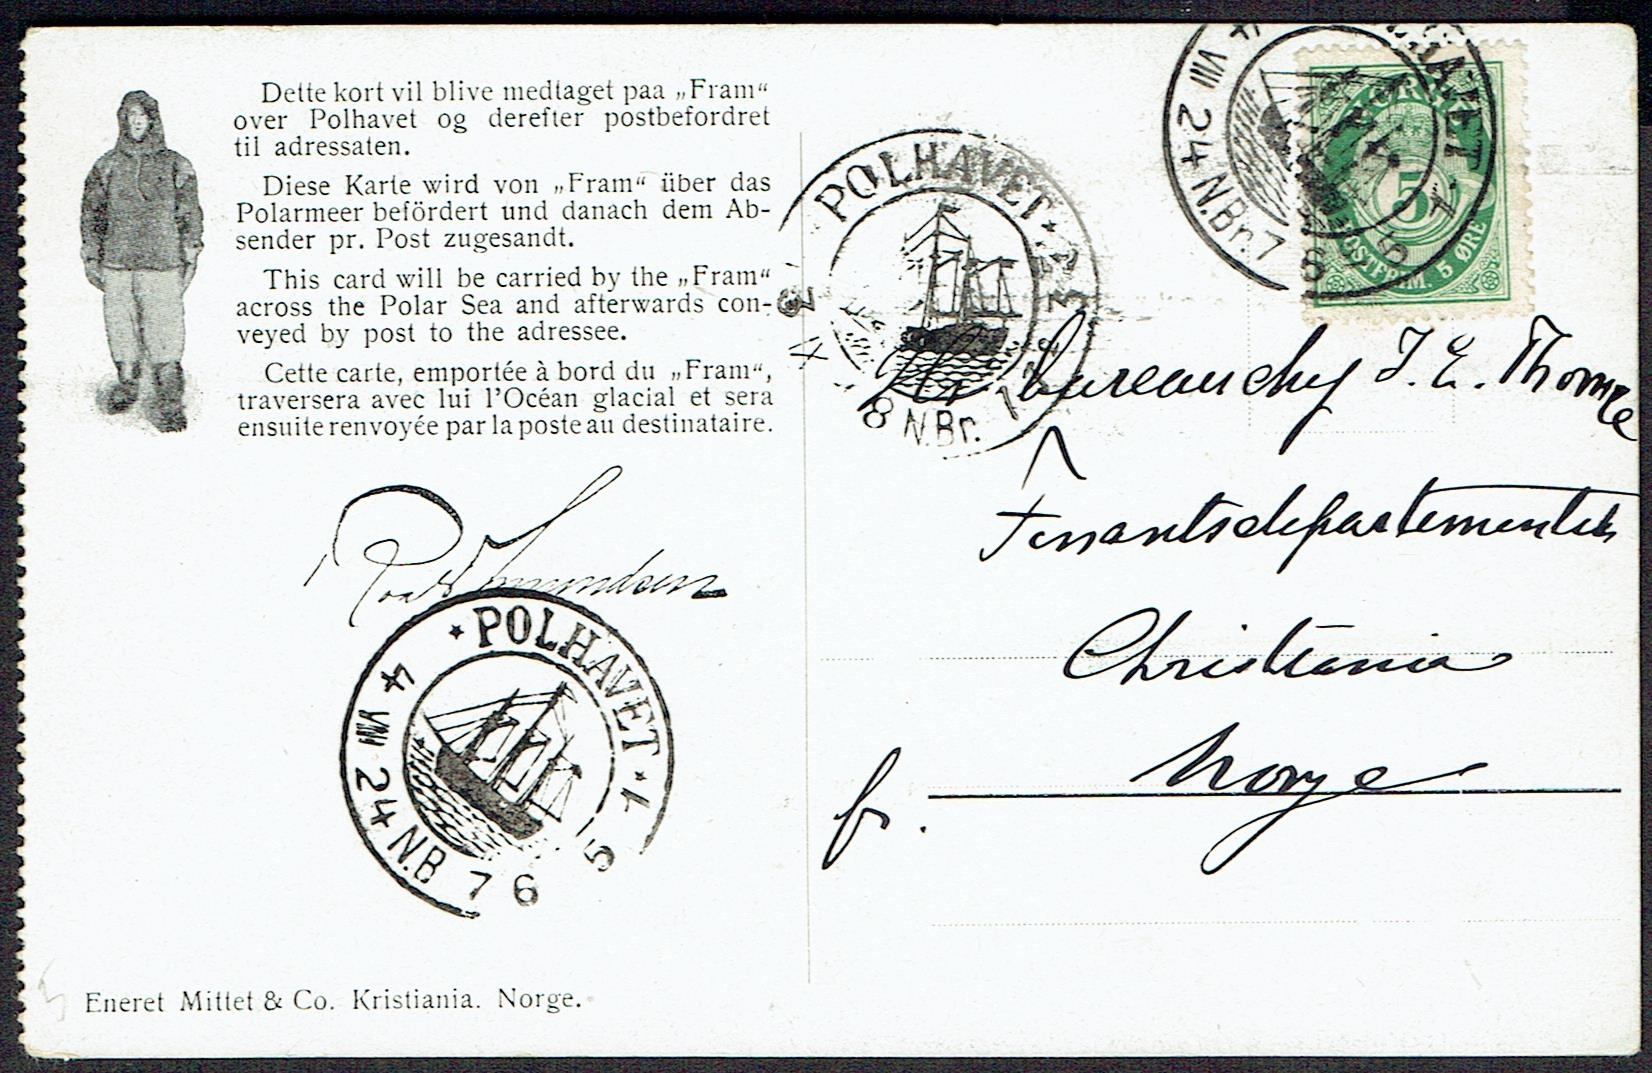 Dette kort vil blive medtaget paa „Fram“
over Polhavet og derefter postbefordret
til adressaten.
Diese Karte wird von „Fram“ über das
Polarmeer befördert und danach dem Ab-
sender pr. Post zugesandt.
This card will be carried by the „Fram“
across the Polar Sea and afterwards con-
veyed by post to the adressee.
Cette carte, emportée à bord du „Fram“,
traversera avec lui l'Océan glacial et sera
ensuite renvoyée par la poste au destinataire.
Roald Amundsen
* POLHAVET *
4 VIII 24 N.B 76 5 1
Eneret Mittet & Co. Kristiania. Norge.
POLHAVET *
8 N.Br.
4 VIII 24 N.Br. 76 5 1
NORGE
5
POSTFRIM. 5 ØRE
Hr bureauchef J. E. Thomle
Finantsdepartementet
Christiania
Norge
fr.